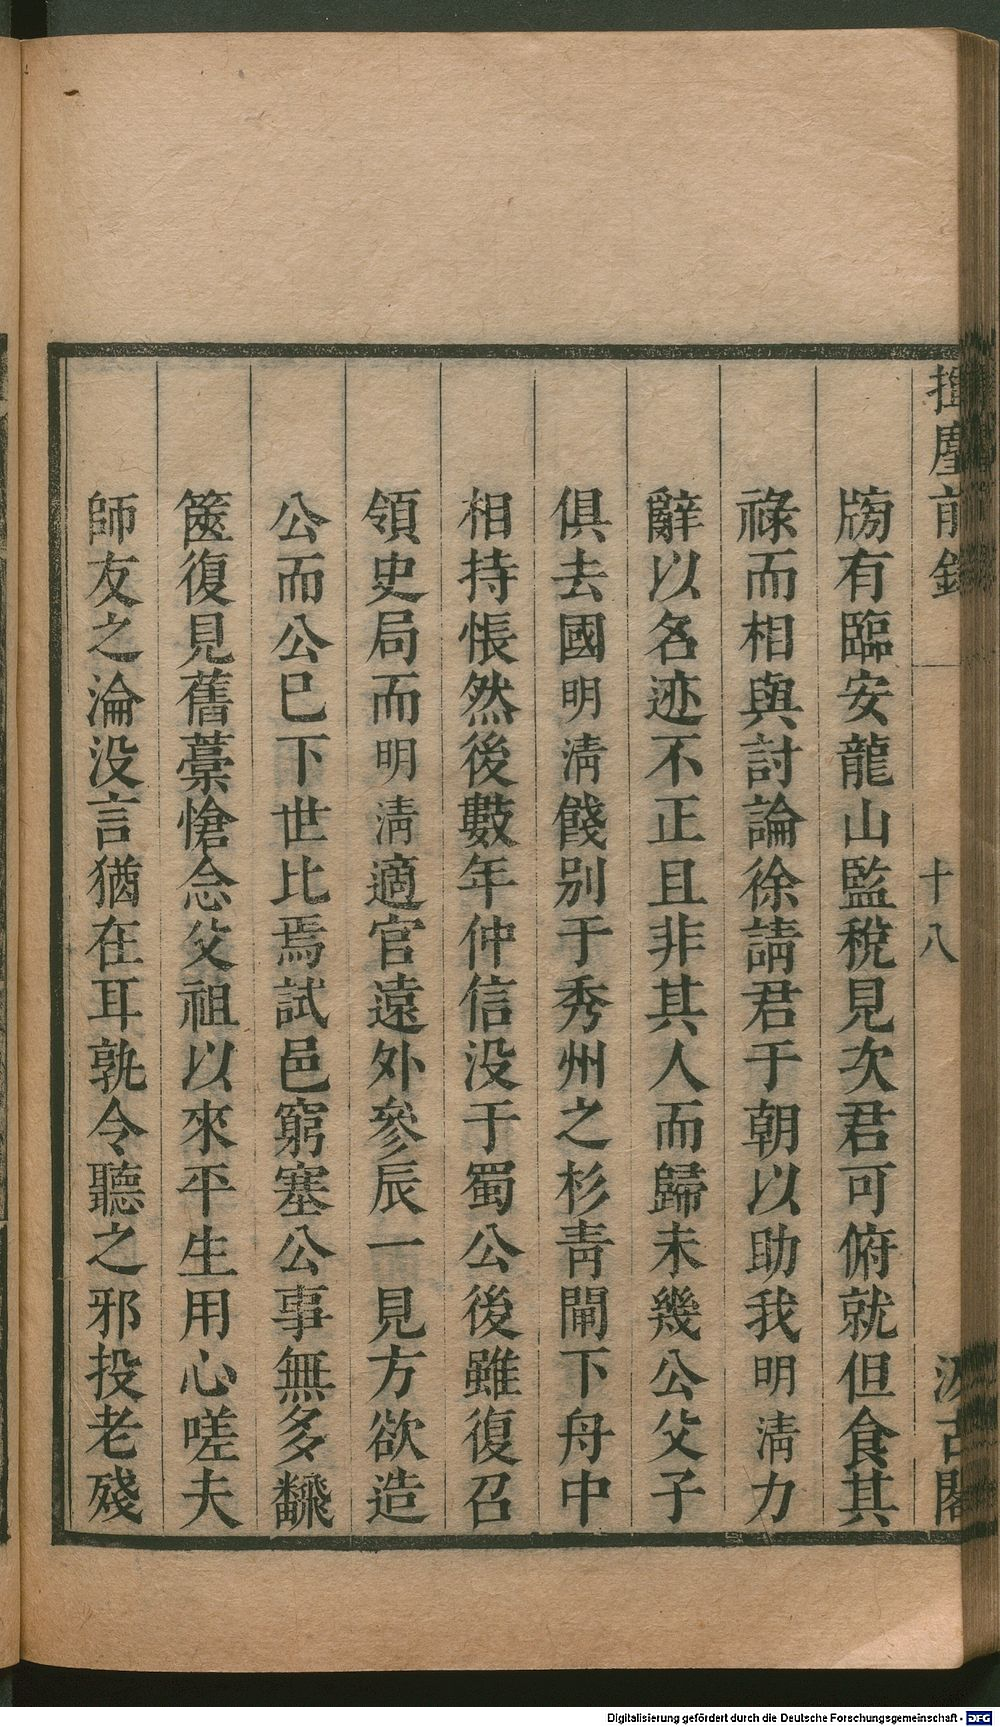 揮麈前錄
十八
汲古閣
牓有臨安龍山監稅見次君可俯就但食其
祿而相與討論徐請君于朝以助我明清力
辭以名迹不正且非其人而歸未幾公父子
俱去國明清餞别于秀州之杉青閘下舟中
相持悵然後數年仲信没于蜀公後雖復召
領史局而明清適官遠外參辰一見方欲造
公而公已下世比焉試邑窮塞公事無多飜
篋復見舊藁愴念父祖以來平生用心嗟夫
師友之淪没言猶在耳孰令聽之邪投老殘
Digitalisierung gefördert durch die Deutsche Forschungsgemeinschaft - DFG